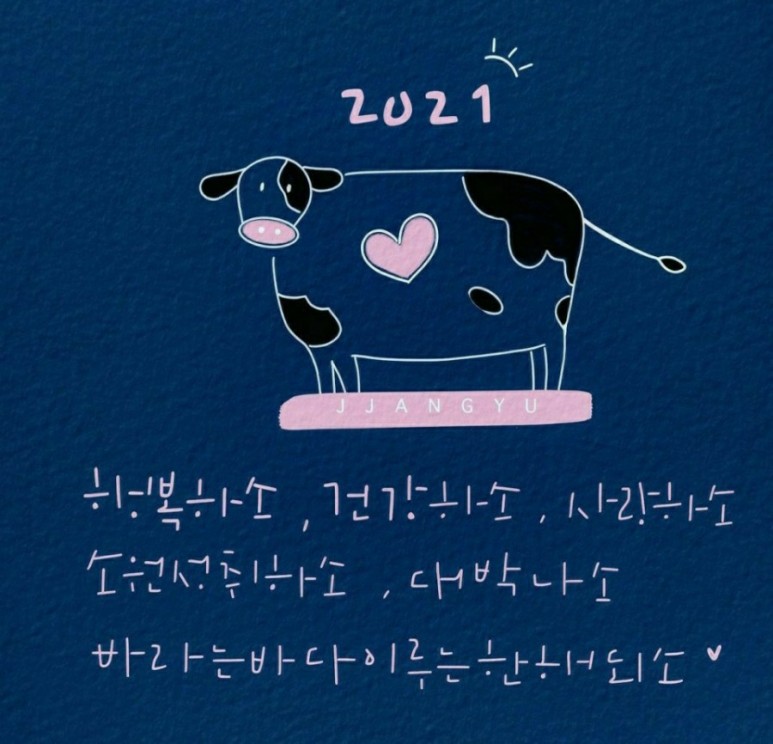 2021
JJANGYU
행복하소, 건강하소, 사랑하소
소원성취하소, 대박나소
바라는바 다이루는 한해되소